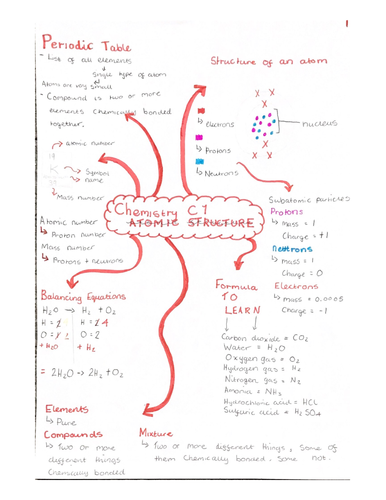 1
Periodic Table
- List of all elements
Single type of atom
Atoms are very small
- Compound is two or more
elements Chemically bonded
together.
Structure of an atom
x x
x
electrons
Protons
Neutrons
nucleus
x
x x
atomic number
Symbol
name
Mass number
Atomic number
↳ Proton number
Mass number
↳ Protons + neutrons
Chemistry C1
ATOMIC STRUCTURE
Subatomic particles
Protons
↳ mass = 1
Charge = +1
Neutrons
↳ mass = 1
Charge = 0
Electrons
↳ mass = 0.0005
Charge = -1
Balancing Equations
H₂O → H₂ + O₂
O = 2
+ H₂O
+ H₂
= 2H₂O → 2H₂ + O₂
Formula
TO
LEARN
Carbon dioxide = CO₂
Water = H₂O
Oxygen gas = O₂
Hydrogen gas = H₂
Nitrogen gas = N₂
Amonia = NH₃
Hydrochloric acid = HCL
Sulfuric acid = H₂SO₄
Elements
↳ Pure
Compounds
↳ Two or more
different things
Chemically bonded
Mixture
↳ Two or more different things, Some of
them Chemically bonded. Some not.